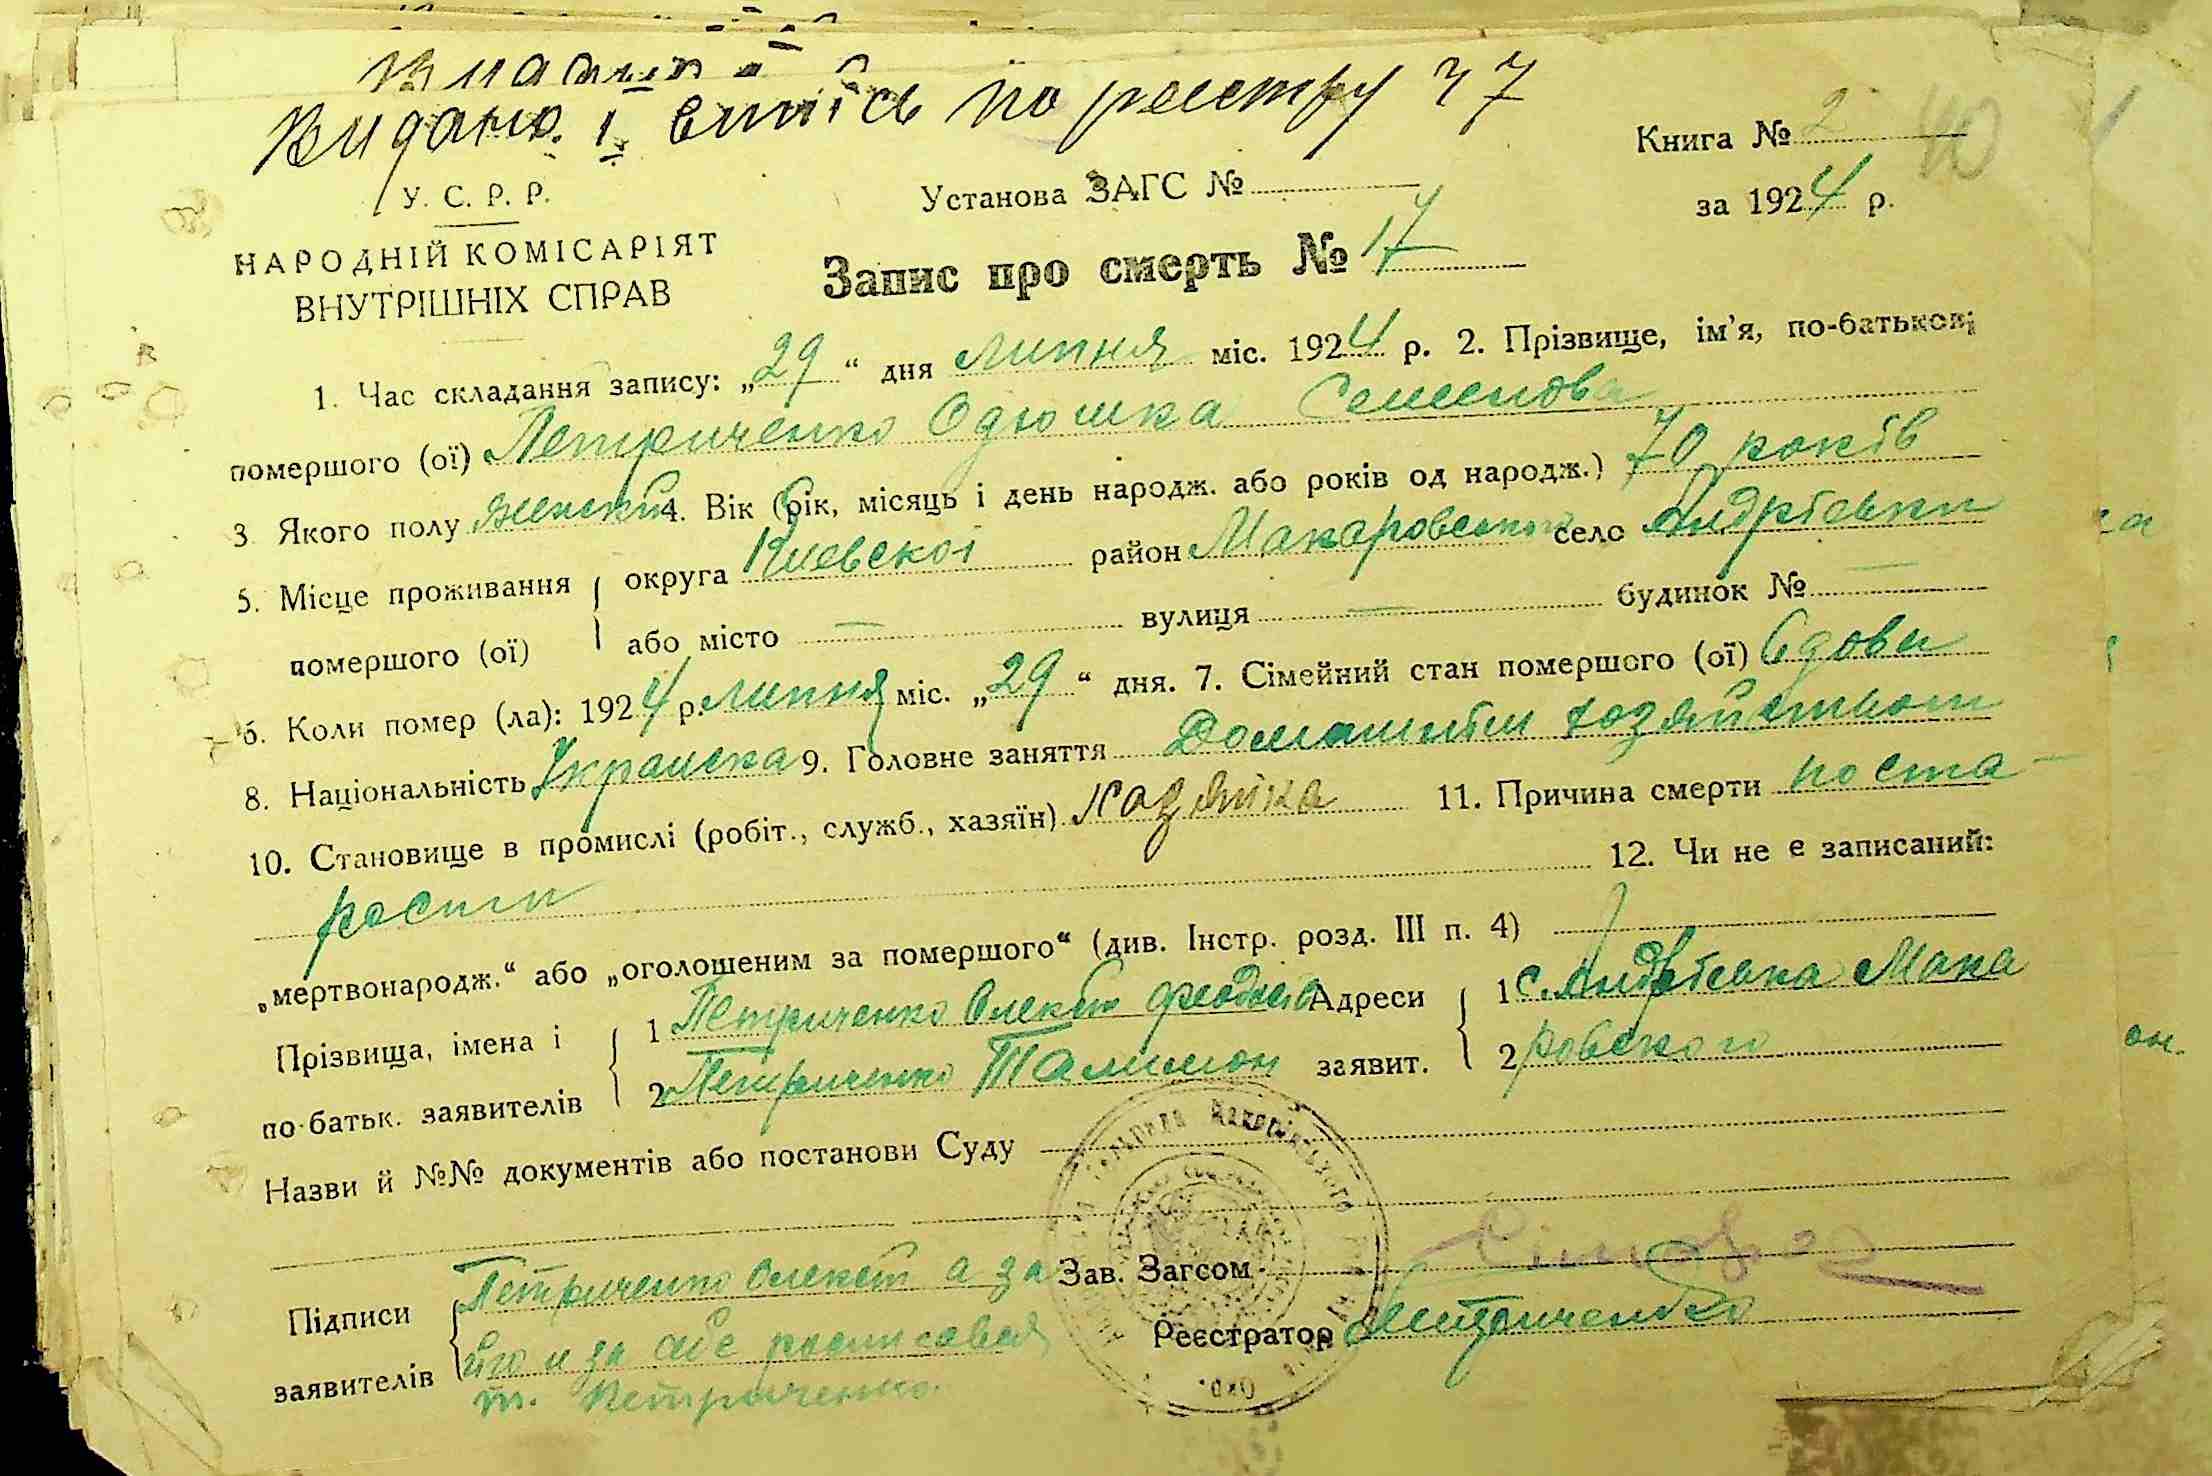 Видано 1 випись по реєстру Ч 7
Книга № 2
У. С. Р. Р.
Установа ЗАГС №
за 1924 р.
НАРОДНІЙ КОМІСАРІЯТ
ВНУТРІШНІХ СПРАВ
Запис про смерть № 17
1. Час складання запису: „29“ дня липня міс. 1924 р. 2. Прізвище, ім’я, по-батькові
помершого (ої) Петриченко Одюшка Семенова
3 Якого полу женский 4. Вік (рік, місяць і день народж. або років од народж.) 70 років
5. Місце проживання округа Киевскоі район Макаровського село Андріевки
помершого (ої) або місто — вулиця — будинок № —
6. Коли помер (ла): 1924 р. липня міс. „29“ дня. 7. Сімейний стан помершого (ої) Вдова
8. Національність Украинска 9. Головне заняття Домашнім хозяйством
10. Становище в промислі (робіт., служб., хазяїн) Хазяйка 11. Причина смерти по ста-
рости 12. Чи не є записаний:
„мертвонародж.“ або „оголошеним за помершого“ (див. Інстр. розд. III п. 4)
Прізвища, імена і 1 Петриченко Олекст Адреси 1 с. Андріевка Мака
по-батьк. заявителів 2 Петриченко Талимон заявит. 2 ровского
Назви й №№ документів або постанови Суду
Підписи Петриченко Олекст а за Зав. Загсом
заявителів його и за себе росписався Реєстратор Петриченко
т. Петриченко